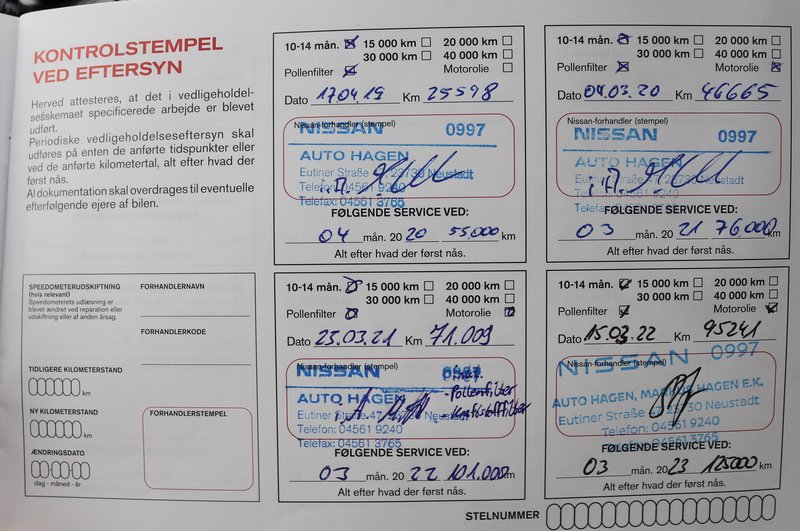 KONTROLSTEMPEL
VED EFTERSYN
Herved attesteres, at det i vedligeholdel-
sesskemaet specificerede arbejde er blevet
udført.
Periodiske vedligeholdelseseftersyn skal
udføres på enten de anførte tidspunkter eller
ved de anførte kilometertal, alt efter hvad der
først nås.
Al dokumentation skal overdrages til eventuelle
efterfølgende ejere af bilen.
10-14 mån. 15 000 km 20 000 km
30 000 km 40 000 km
Pollenfilter Motorolie
Dato 17.04.19 Km 25598
Nissan-forhandler (stempel)
NISSAN 0997
AUTO HAGEN
Eutiner Straße 23730 Neustadt
Telefon: 04561 9240
Telefax: 04561 3765
FØLGENDE SERVICE VED:
04 mån. 20 20 55.000 km
Alt efter hvad der først nås.
10-14 mån. 15 000 km 20 000 km
30 000 km 40 000 km
Pollenfilter Motorolie
Dato 04.03.20 Km 46665
Nissan-forhandler (stempel)
NISSAN 0997
AUTO HAGEN
Eutiner Straße 23730 Neustadt
Telefon: 04561 9240
Telefax: 04561 3765
FØLGENDE SERVICE VED:
03 mån. 20 21 76.000 km
Alt efter hvad der først nås.
SPEEDOMETERUDSKIFTNING
(hvis relevant)
Speedometerets udlæsning er
blevet ændret ved reparation eller
udskiftning eller af anden årsag.
FORHANDLERNAVN
FORHANDLERKODE
TIDLIGERE KILOMETERSTAND
km
NY KILOMETERSTAND
km
ÆNDRINGSDATO
dag - måned - år
FORHANDLERSTEMPEL
10-14 mån. 15 000 km 20 000 km
30 000 km 40 000 km
Pollenfilter Motorolie
Dato 23.03.21 Km 71.009
Nissan-forhandler (stempel)
NISSAN 0997
AUTO HAGEN
- Pollenfilter
- Kraftstofffilter
Eutiner Straße 47 Neustadt
Telefon: 04561 9240
Telefax: 04561 3765
FØLGENDE SERVICE VED:
03 mån. 20 22 101.000 km
Alt efter hvad der først nås.
10-14 mån. 15 000 km 20 000 km
30 000 km 40 000 km
Pollenfilter Motorolie
Dato 15.03.22 Km 95241
Nissan-forhandler (stempel)
NISSAN 0997
AUTO HAGEN, MARKUS HAGEN E.K.
Eutiner Straße 23730 Neustadt
Telefon: 04561 9240
Telefax: 04561 3765
FØLGENDE SERVICE VED:
03 mån. 20 23 125000 km
Alt efter hvad der først nås.
STELNUMMER